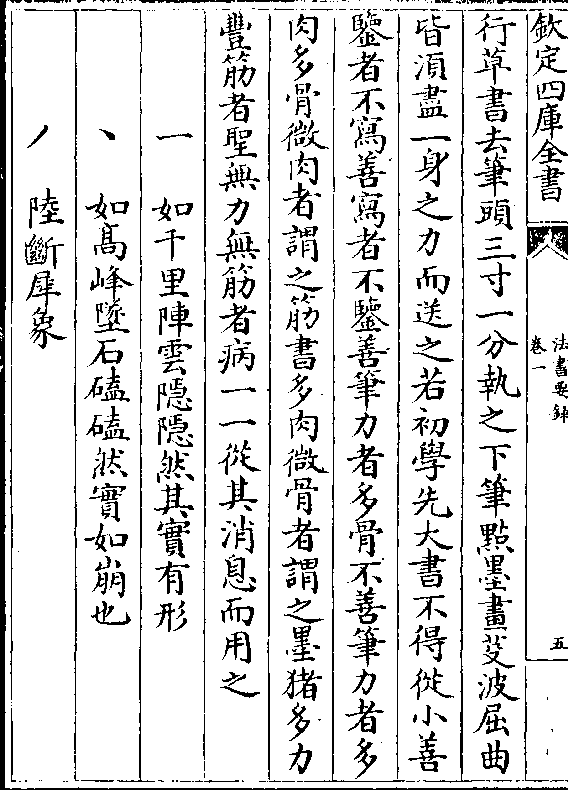 欽定四庫全書
法書要錄
卷一
五
行草書去筆頭三寸一分執之下筆㸃墨畫芟波屈曲
皆湏盡一身之力而送之若初學先大書不得從小善
鑒者不寫善寫者不鑒善筆力者多骨不善筆力者多
肉多骨微肉者謂之筋書多肉微骨者謂之墨猪多力
豐筋者聖無力無筋者病一一從其消息而用之
一 如千里陣雲隠隠然其實有形
丶 如髙峰墜石磕磕然實如崩也
丿 陸斷犀象